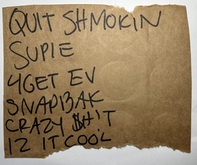 QUIT SHMOKIN
SUPIE
4GET EV
SNAP13AK
CRAZY $H!T
IZ IT COOL